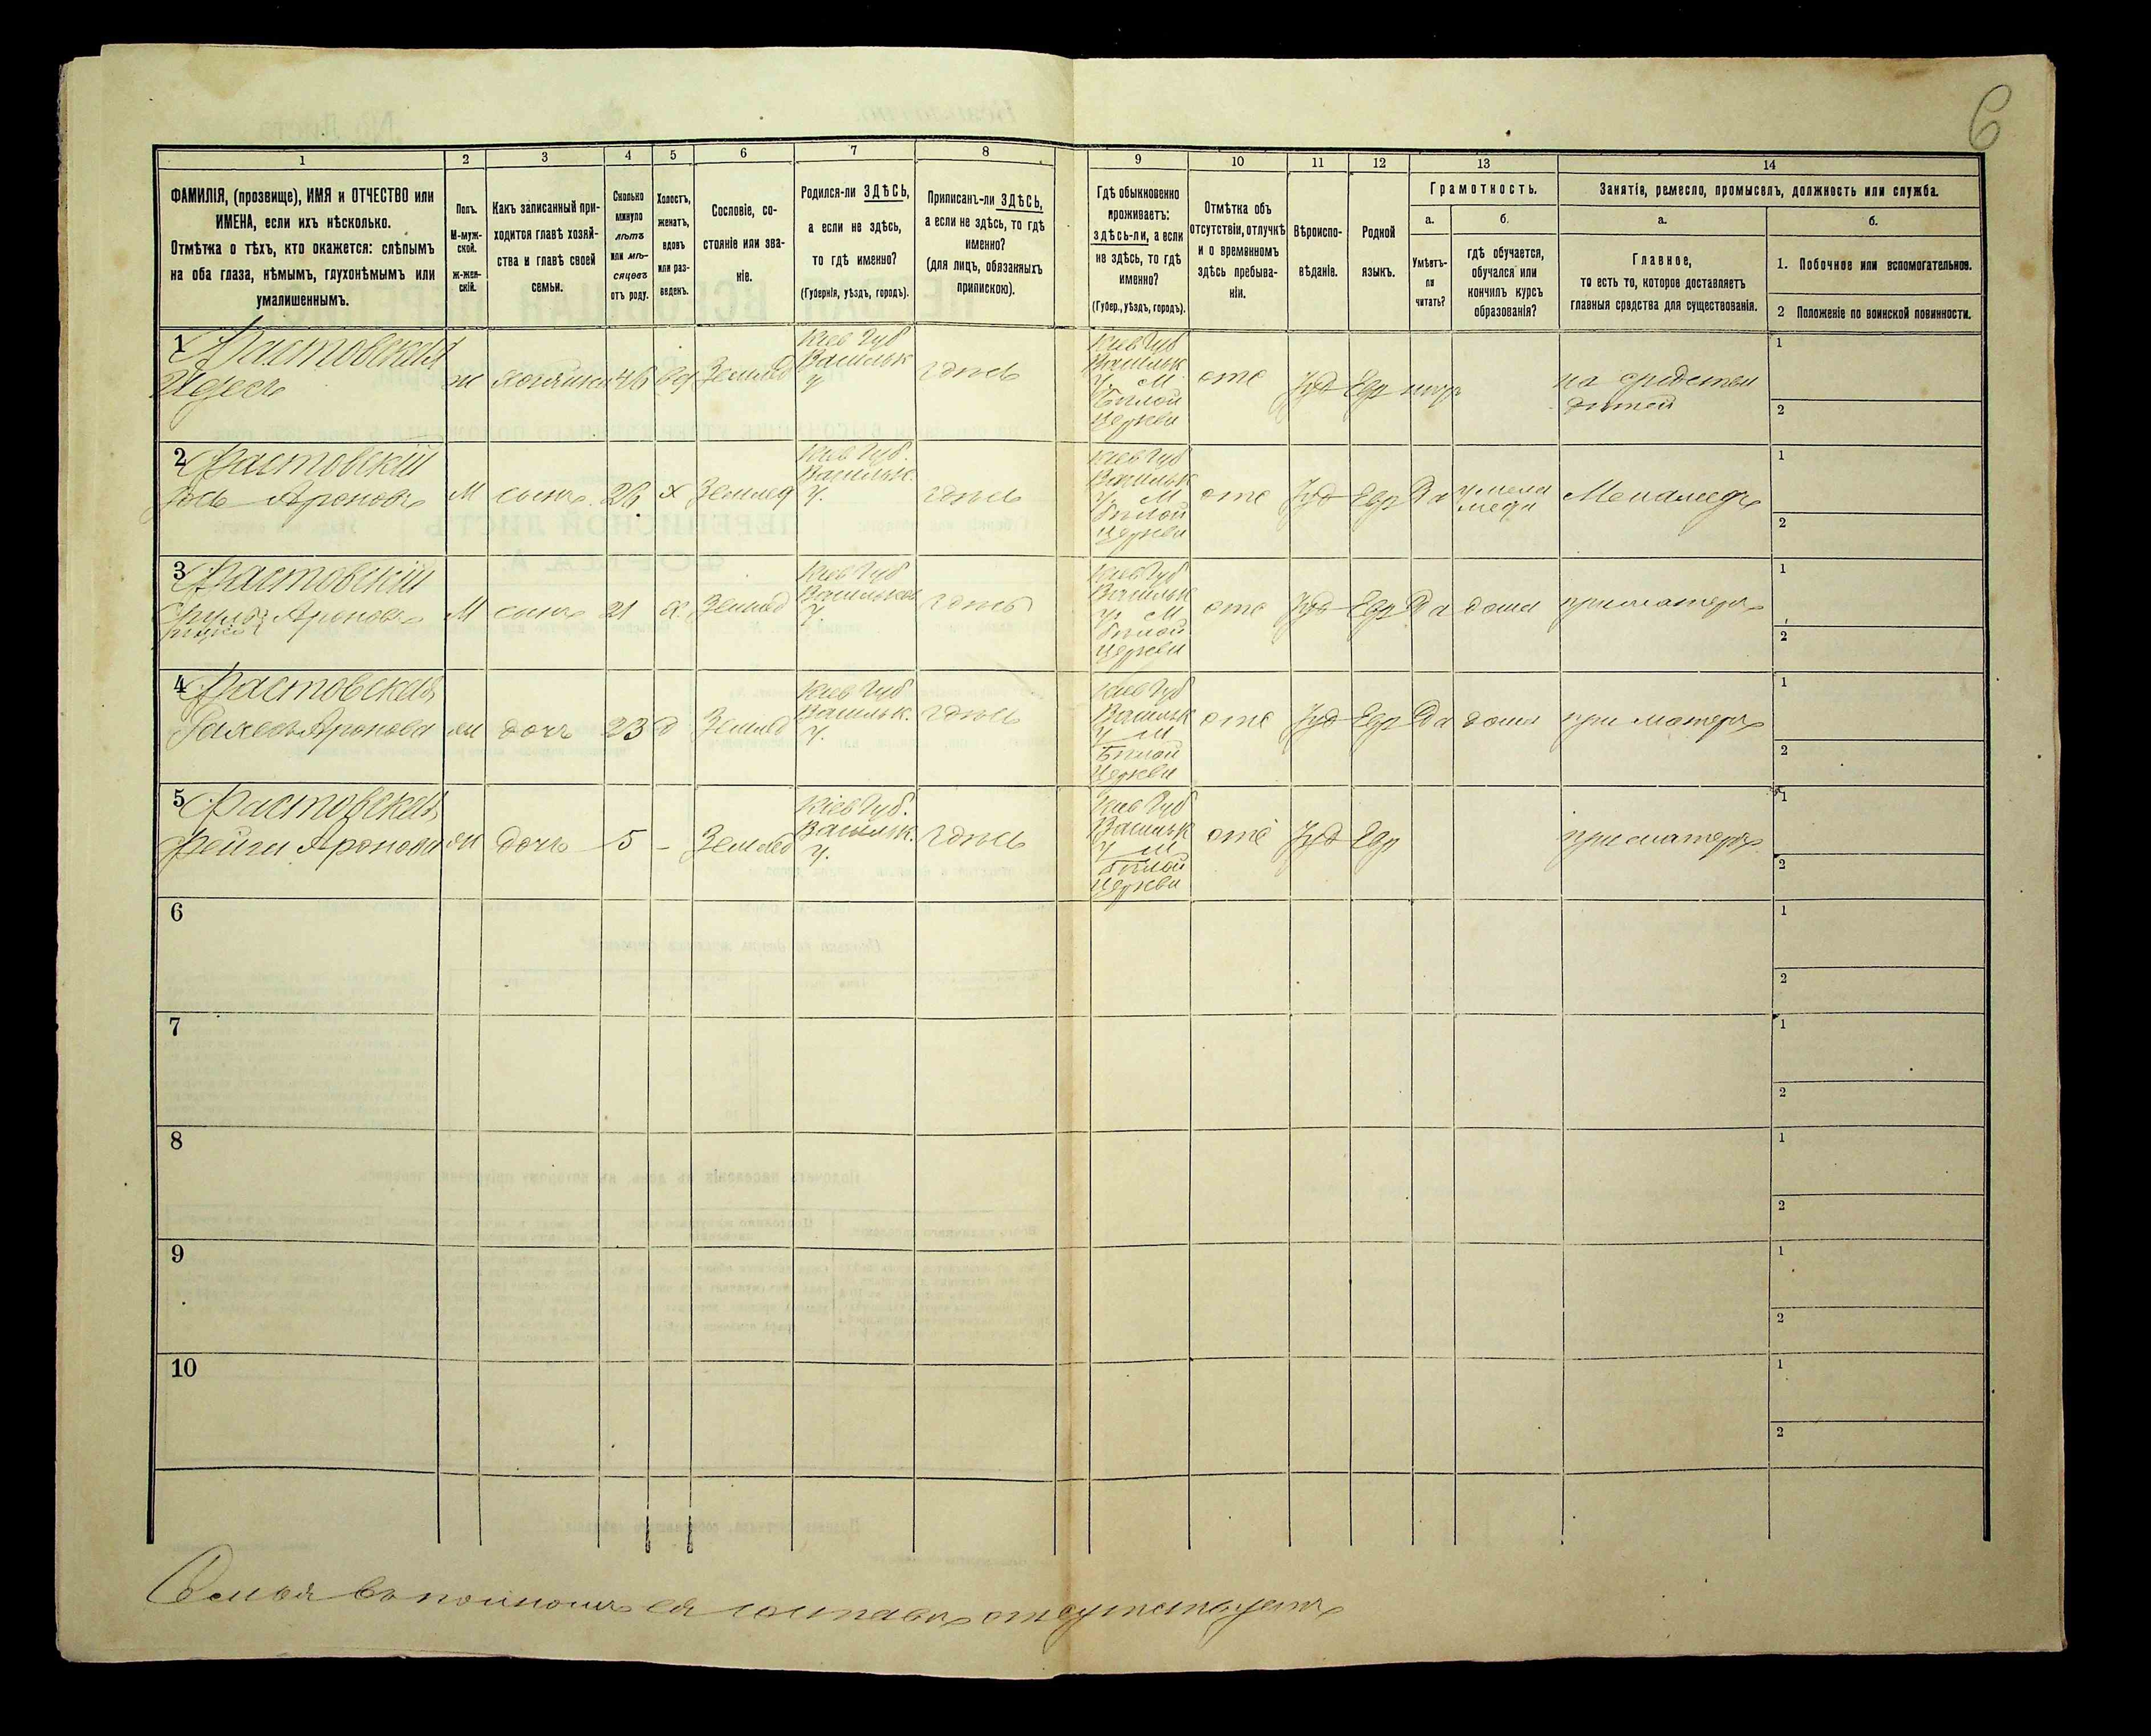 6
1
2
3
4
5
6
7
8
9
10
11
12
13
14
ФАМИЛІЯ, (прозвище), ИМЯ и ОТЧЕСТВО или
ИМЕНА, если ихъ нѣсколько.
Отмѣтка о тѣхъ, кто окажется: слѣпымъ
на оба глаза, нѣмымъ, глухонѣмымъ или
умалишеннымъ.
Полъ.
М-муж-
ской.
ж-жен-
скій.
Какъ записанный при-
ходится главѣ хозяй-
ства и главѣ своей
семьи.
Сколько
минуло
лѣтъ
или мѣ-
сяцевъ
отъ роду.
Холостъ,
женатъ,
вдовъ
или раз-
веденъ.
Сословіе, со-
стояніе или зва-
ніе.
Родился-ли ЗДѢСЬ,
а если не здѣсь,
то гдѣ именно?
(Губернія, уѣздъ, городъ).
Приписанъ-ли ЗДѢСЬ,
а если не здѣсь, то гдѣ
именно?
(для лицъ, обязанныхъ
припискою).
Гдѣ обыкновенно
проживаетъ:
здѣсь-ли, а если
не здѣсь, то гдѣ
именно?
(Губер., уѣздъ, городъ).
Отмѣтка объ
отсутствіи, отлучкѣ
и о временномъ
здѣсь пребыва-
ніи.
Вѣроиспо-
вѣданіе.
Родной
языкъ.
Грамотность.
а.
Умѣетъ-
ли
читать?
б.
гдѣ обучается,
обучался или
кончилъ курсъ
образованія?
Занятіе, ремесло, промыселъ, должность или служба.
а.
Главное,
то есть то, которое доставляетъ
главныя средства для существованія.
б.
1. Побочное или вспомогательное.
2 Положеніе по воинской повинности.
1 Фастовская
ж хозяйка 46 вд Землед
Кіев Губ
Васильк
У
здѣсь
Кіев Губ
Васильк
У. М
Бѣлой
Церкви
отс Іуд Евр
на средства
дѣтей
1
2
2 Фастовскій
Ароновъ М сынъ 26 х Землед
Кіев Губ.
Васильк.
У.
здѣсь
Кіев Губ
Васильк
У. М
Бѣлой
Церкви
отс Іуд Евр Да
Меламедъ
1
2
3 Фастовскій
Ароновъ М сынъ 21 х Землед
Кіев Губ
Васильков
У
здѣсь
Кіев Губ
Васильк
У. М
Бѣлой
Церкви
отс Іуд Евр Да дома при матери
1
2
4 Фастовская
Аронова ж дочь 23 д Землед
Кіев Губ
Васильк.
У.
здѣсь
Кіев Губ
Васильк
У М
Бѣлой
Церкви
отс Іуд Евр Да дома при матери
1
2
5 Фастовская
Фейга Аронова ж дочь 5 - Землед
Кіев Губ.
Васильк.
У.
здѣсь
Кіев Губ
Васильк
У М
Бѣлой
Церкви
отс Іуд Евр при матери
1
2
6
1
2
7
1
2
8
1
2
9
1
2
10
1
2
Семья въ полномъ ея составѣ отсутствуетъ